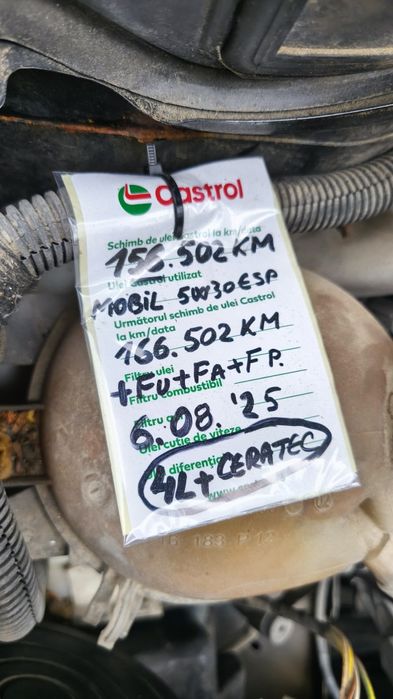 Castrol
Schimb de ulei Castrol la km/data
156.502 KM
Ulei Castrol utilizat
MOBIL 5W30 ESP
Următorul schimb de ulei Castrol
la km/data
166.502 KM
Filtru ulei
+FU+FA+FP.
Filtru combustibil
Filtru
6.08.'25
Ulei cutie de viteze
diferenţial
4L+CERATEC
www.
183 P12